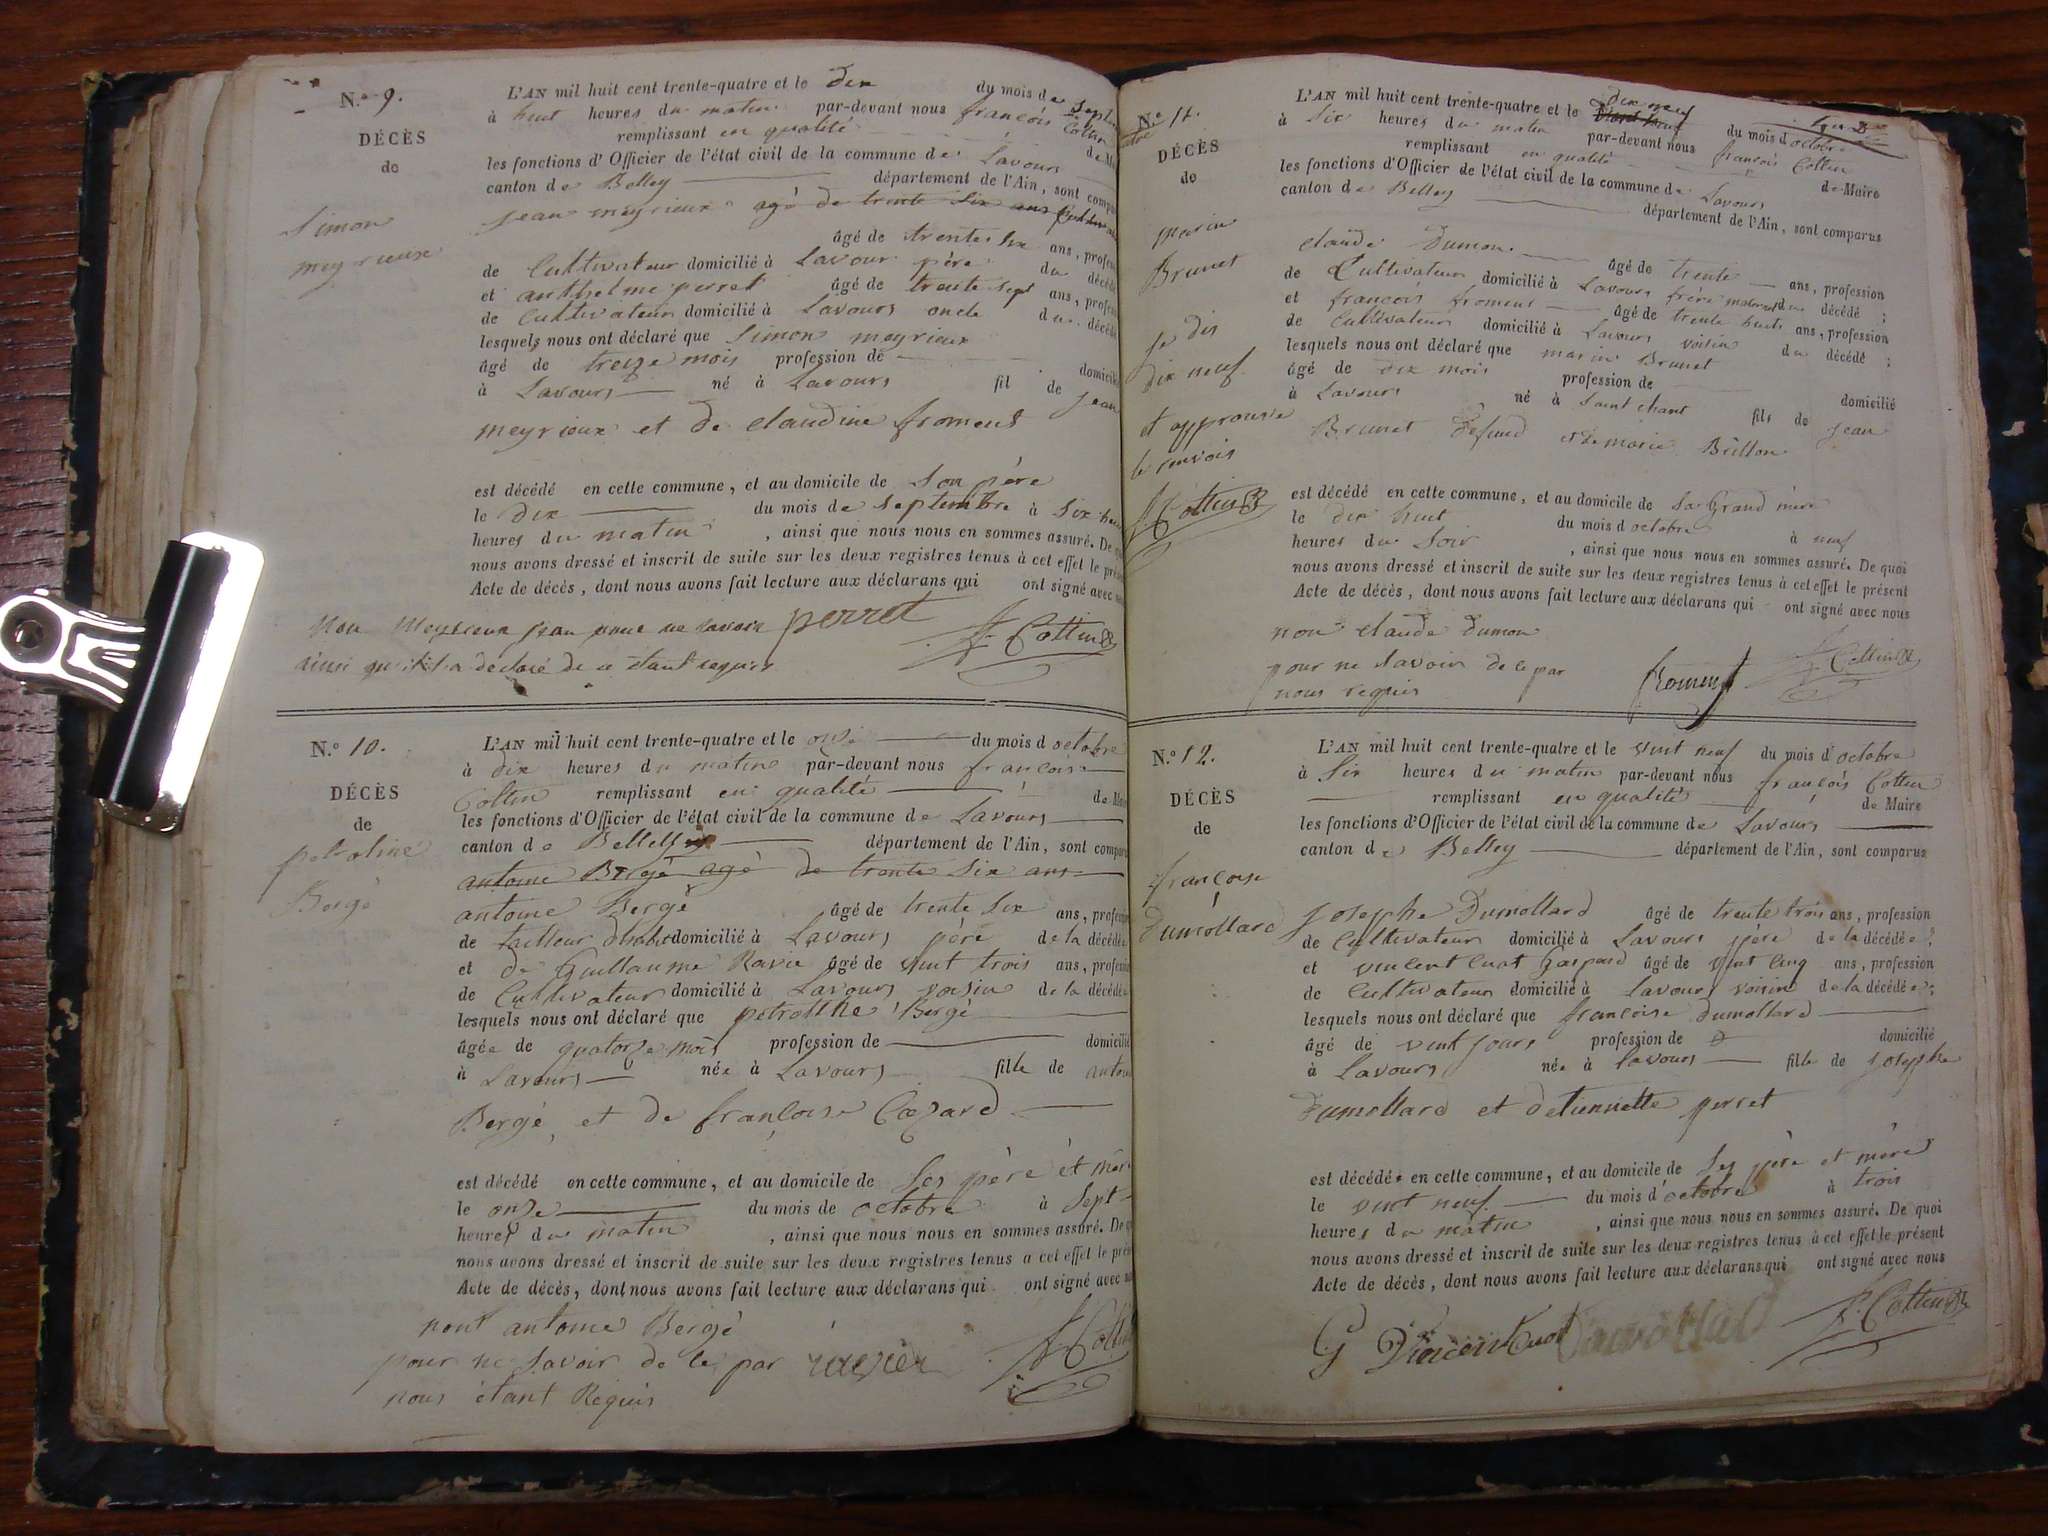 N.o 9.
DÉCÈS
de
Simon
meyrieux
L'AN mil huit cent trente-quatre et le dix du mois de Sept
à huit heures du matin par-devant nous françois Cottin
remplissant en qualité de M
les fonctions d'Officier de l'état civil de la commune de Lavours
canton de Belley département de l'Ain, sont compa
jean meyrieux agé de trente Six ans
âgé de trente Six ans, profess
de Cultivateur domicilié à Lavour père du décéd
et anthelme perret âgé de trente Sept ans, profess
de Cultivateur domicilié à Lavours oncle du décéd
lesquels nous ont déclaré que Simon meyrieux
âgé de treize mois profession de domicili
à Lavours né à Lavours fil de jean
meyrieux et de claudine froment
est décédé en cette commune, et au domicile de Son père
le dix du mois de Septembre à Six heu
heures du matin, ainsi que nous nous en sommes assuré. De q
nous avons dressé et inscrit de suite sur les deux registres tenus à cet effet le prés
Acte de décès, dont nous avons fait lecture aux déclarans qui ont signé avec
Non Meyrieux jean pour ne savoir perret F. Cottin
ainsi qu'il l'a declaré de ce étant requis
N.o 10.
DÉCÈS
de
petroline
Bergé
L'AN mil huit cent trente-quatre et le onze du mois d octobre
à dix heures du matin par-devant nous françois
Cottin remplissant en qualité de M
les fonctions d'Officier de l'état civil de la commune de Lavours
canton de Belley département de l'Ain, sont compar
antoine Bergé agé de trente Six ans
antoine Bergé âgé de trente Six ans, profess
de tailleur dhabit domicilié à Lavours père de la décédée
et de Guillaume Ravie âgé de vint trois ans, profess
de Cultivateur domicilié à Lavours voisin de la décédée
lesquels nous ont déclaré que petroline Bergé
âgée de quatorze mois profession de domicilié
à Lavours née à Lavours fille de antoi
Bergé et de françoise Cozard
est décédé en cette commune, et au domicile de Ses père et mère
le onze du mois de octobre à Sept
heures du matin, ainsi que nous nous en sommes assuré. De q
nous avons dressé et inscrit de suite sur les deux registres tenus a cet effet le prés
Acte de décès, dont nous avons fait lecture aux déclarans qui ont signé avec
nont antoine Bergé
pour ne Savoir de ce par F. Cottin
nous étant Requis
N.o 11.
DÉCÈS
de
marin
Brunet
je dis
dix neuf
et approuve
le renvois
F. Cottin
L'AN mil huit cent trente-quatre et le dix neuf du mois d octobre
à Six heures du matin par-devant nous françois Cottin
remplissant en qualité de Maire
les fonctions d'Officier de l'état civil de la commune de Lavours
canton de Belley département de l'Ain, sont comparus
claude Dumon âgé de trente ans, profession
de Cultivateur domicilié à Lavours frère maternel du décédé;
et françois froment âgé de trente huit ans, profession
de Cultivateur domicilié à Lavours voisin du décédé;
lesquels nous ont déclaré que marin Brunet
âgé de dix mois profession de domicilié
à Lavours né à Saint chant fils de jean
Brunet Défund et de marie Brillon
est décédé en cette commune, et au domicile de Sa Grand mère
le dix huit du mois d octobre à neuf
heures du Soir, ainsi que nous nous en sommes assuré. De quoi
nous avons dressé et inscrit de suite sur les deux registres tenus à cet effet le présent
Acte de décès, dont nous avons fait lecture aux déclarans qui ont signé avec nous
non claude Dumon
pour ne Savoir de ce par froment F. Cottin
nous requis
N.o 12.
DÉCÈS
de
françoise
Dumollard
L'AN mil huit cent trente-quatre et le vint neuf du mois d octobre
à Six heures du matin par-devant nous françois Cottin
remplissant en qualité de Maire
les fonctions d'Officier de l'état civil de la commune de Lavours
canton de Belley département de l'Ain, sont comparus
Josephe Dumollard âgé de trente trois ans, profession
de Cultivateur domicilié à Lavours père de la décédée;
et vincent cuat Gaspard âgé de vint cinq ans, profession
de Cultivateur domicilié à Lavours voisin de la décédée;
lesquels nous ont déclaré que françoise Dumollard
âgé de vint jours profession de domicilié
à Lavours née à Lavours fille de Josephe
Dumollard et detiennette perret
est décédée en cette commune, et au domicile de Ses père et mère
le vint neuf du mois d'octobre à trois
heures du matin, ainsi que nous nous en sommes assuré. De quoi
nous avons dressé et inscrit de suite sur les deux registres tenus à cet effet le présent
Acte de décès, dont nous avons fait lecture aux déclarans qui ont signé avec nous
G Vincent Cuat Dumollard F. Cottin